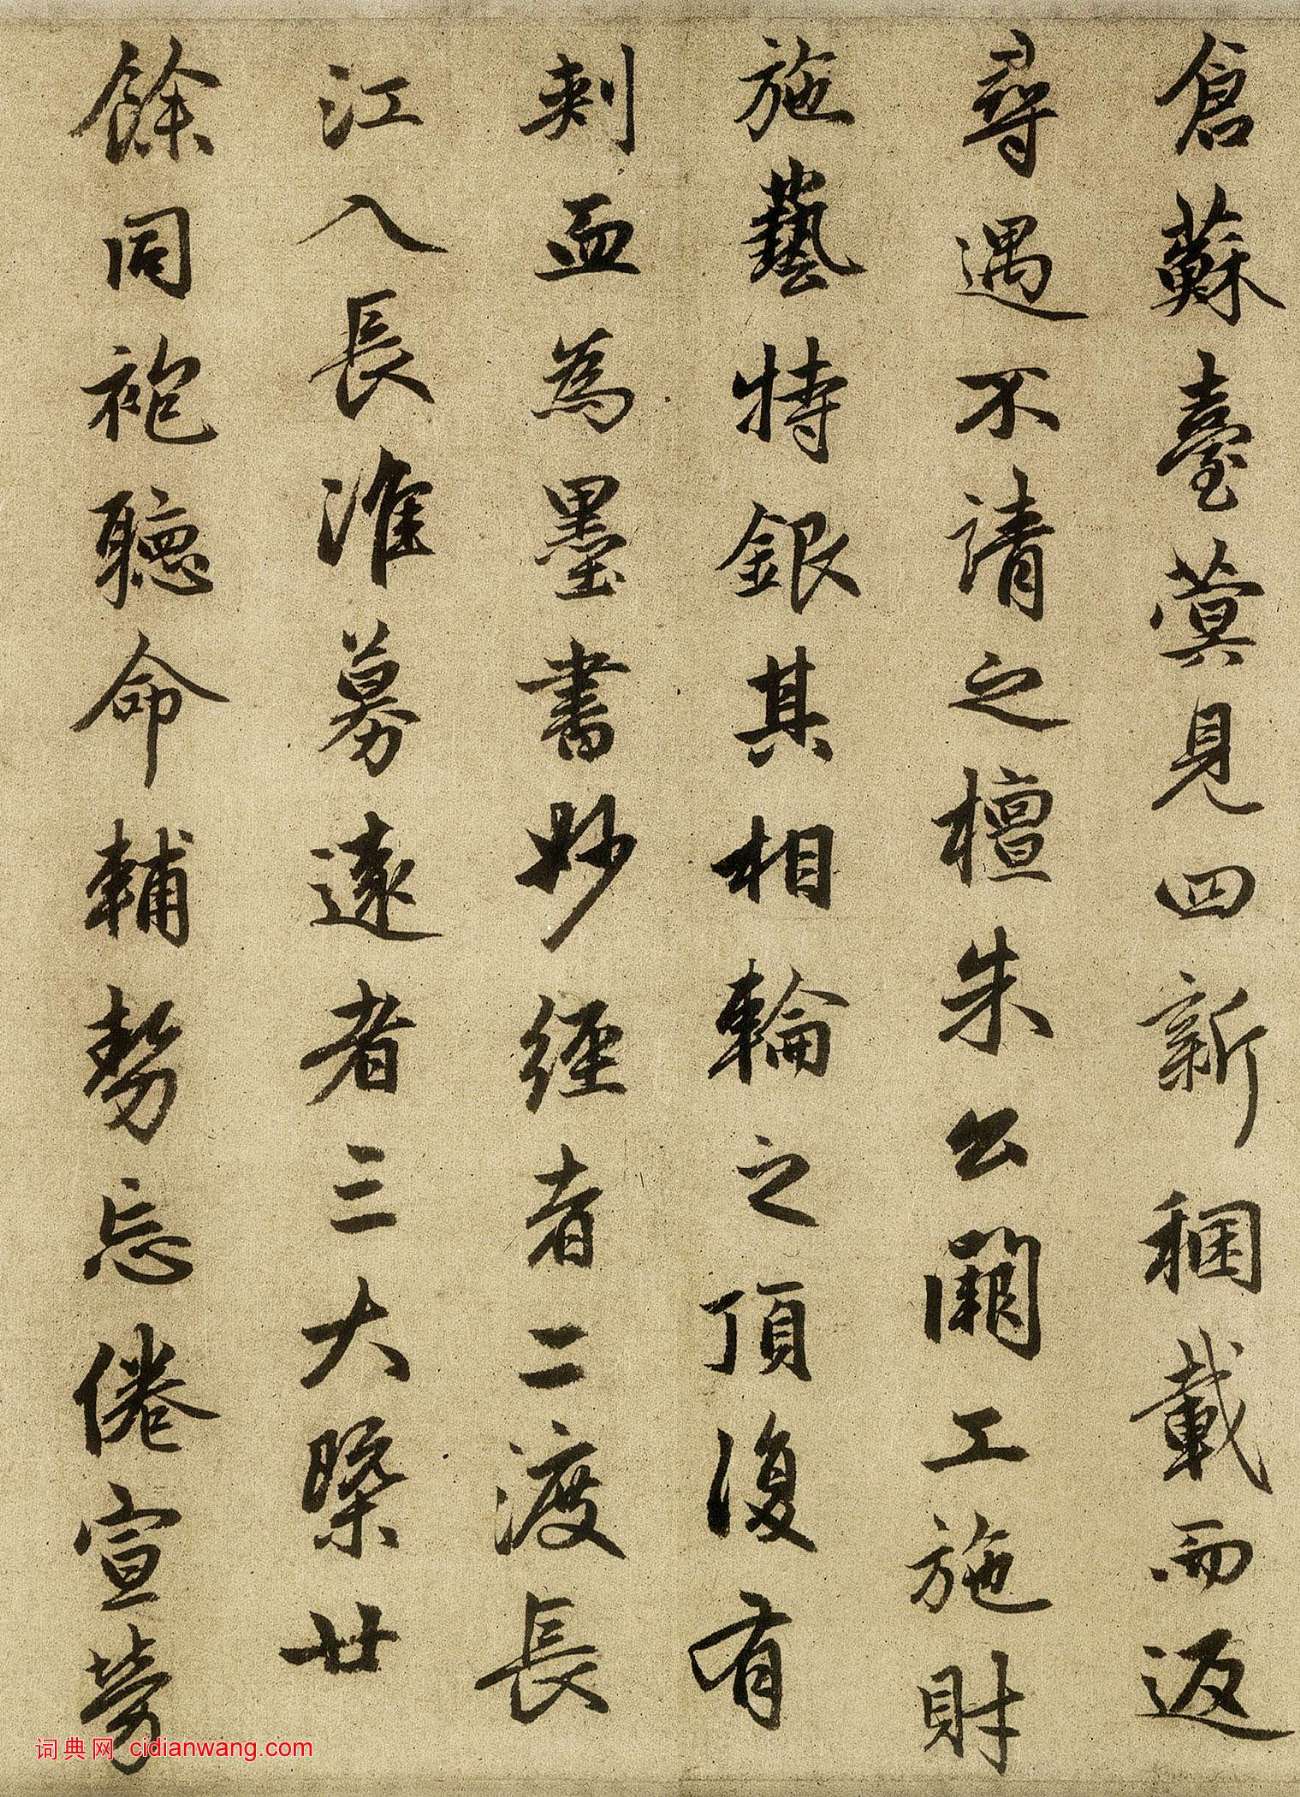 倉蘇臺蓂見四新稛載而返
尋遇不請之檀朱公關工施財
施藝特銀其相輪之頂復有
刺血為墨書妙經者二渡長
江入長淮募遠者三大槩廿
餘同袍聽命輔勢忘倦宣勞
词典网 cidianwang.com